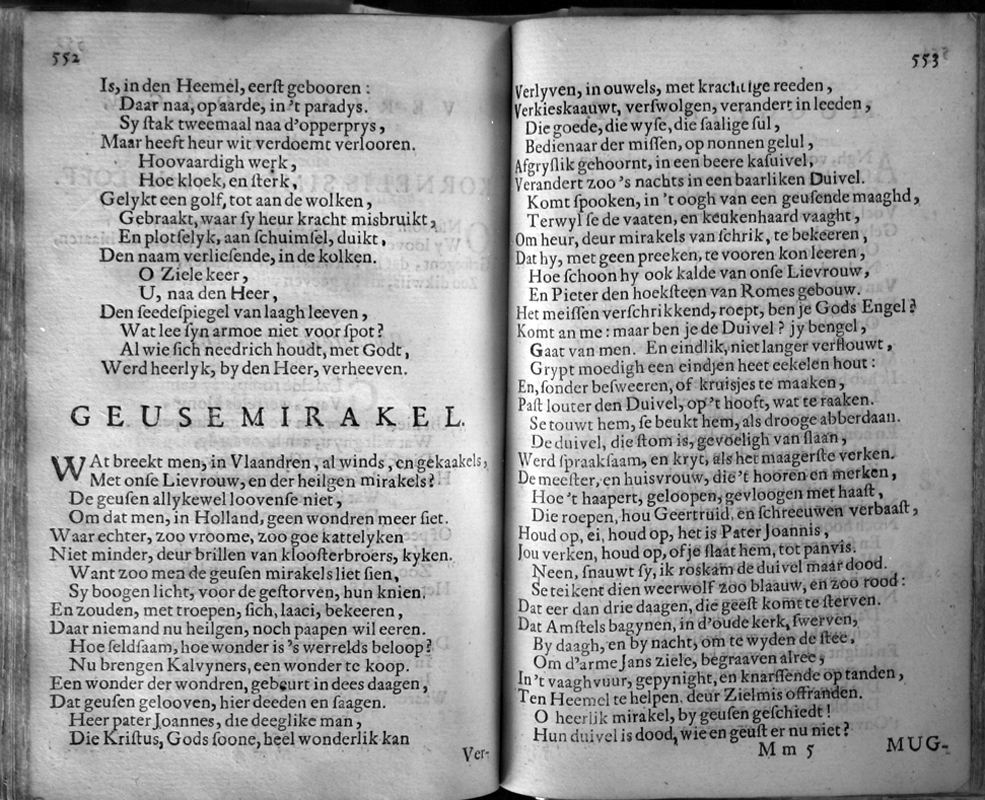 552
Is, in den Heemel, eerſt gebooren :
Daar naa, op aarde, in 't paradys.
Sy ſtak tweemaal naa d'opperprys,
Maar heeft heur wit verdoemt verlooren.
Hoovaardigh werk,
Hoe kloek, en ſterk,
Gelykt een golf, tot aan de wolken,
Gebraakt, waar ſy heur kracht misbruikt,
En plotſelyk, aan ſchuimſel, duikt,
Den naam verlieſende, in de kolken.
O Ziele keer,
U, naa den Heer,
Den ſeedeſpiegel van laagh leeven,
Wat lee ſyn armoe niet voor ſpot?
Al wie ſich needrich houdt, met Godt,
Werd heerlyk, by den Heer, verheeven.
GEUSEMIRAKEL.
WAt breekt men, in Vlaandren, al winds, en gekaakels,
Met onſe Lievrouw, en der heilgen mirakels?
De geuſen allykewel loovenſe niet,
Om dat men, in Holland, geen wondren meer ſiet.
Waar echter, zoo vroome, zoo goe kattelyken
Niet minder, deur brillen van klooſterbroers, kyken.
Want zoo men de geuſen mirakels liet ſien,
Sy boogen licht, voor de geſtorven, hun knien.
En zouden, met troepen, ſich, laaci, bekeeren,
Daar niemand nu heilgen, noch paapen wil eeren.
Hoe ſeldſaam, hoe wonder is 's werrelds beloop?
Nu brengen Kalvyners, een wonder te koop.
Een wonder der wondren, gebeurt in dees daagen,
Dat geuſen gelooven, hier deeden en ſaagen.
Heer pater Joannes, die deeglike man,
Die Kriſtus, Gods ſoone, heel wonderlik kan
Ver-
553
Verlyven, in ouwels, met krachtige reeden,
Verkieskaauwt, verſwolgen, verandert in leeden,
Die goede, die wyſe, die ſaalige ſul,
Bedienaar der miſſen, op nonnen gelul,
Afgryſlik gehoornt, in een beere kaſuivel,
Verandert zoo 's nachts in een baarliken Duivel.
Komt ſpooken, in 't oogh van een geuſende maaghd,
Terwyl ſe de vaaten, en keukenhaard vaaght,
Om heur, deur mirakels van ſchrik, te bekeeren,
Dat hy, met geen preeken, te vooren kon leeren,
Hoe ſchoon hy ook kalde van onſe Lievrouw,
En Pieter den hoekſteen van Romes gebouw.
Het meiſſen verſchrikkend, roept, ben je Gods Engel?
Komt an me : maar ben je de Duivel ? jy bengel,
Gaat van men. En eindlik, niet langer verflouwt,
Grypt moedigh een eindjen heet eekelen hout :
En, ſonder beſweeren, of kruisjes te maaken,
Paſt louter den Duivel, op 't hooft, wat te raaken.
Se touwt hem, ſe beukt hem, als drooge abberdaan.
De duivel, die ſtom is, gevoeligh van ſlaan,
Werd ſpraakſaam, en kryt, als het maagerſte verken.
De meeſter, en huisvrouw, die 't hooren en merken,
Hoe 't haapert, geloopen, gevloogen met haaſt,
Die roepen, hou Geertruid, en ſchreeuwen verbaaſt,
Houd op, ei, houd op, het is Pater Joannis,
Jou verken, houd op, of je ſlaat hem, tot panvis.
Neen, ſnauwt ſy, ik roskam de duivel maar dood.
Se teikent dien weerwolf zoo blaauw, en zoo rood :
Dat eer dan drie daagen, die geeſt komt te ſterven.
Dat Amſtels bagynen, in d'oude kerk, ſwerven,
By daagh, en by nacht, om te wyden de ſtee,
Om d'arme Jans ziele, begraaven alree,
In 't vaaghvuur, gepynight, en knarſſende op tanden,
Ten Heemel te helpen, deur Zielmis offranden.
O heerlik mirakel, by geuſen geſchiedt!
Hun duivel is dood, wie en geuſt er nu niet?
Mm 5
MUG-